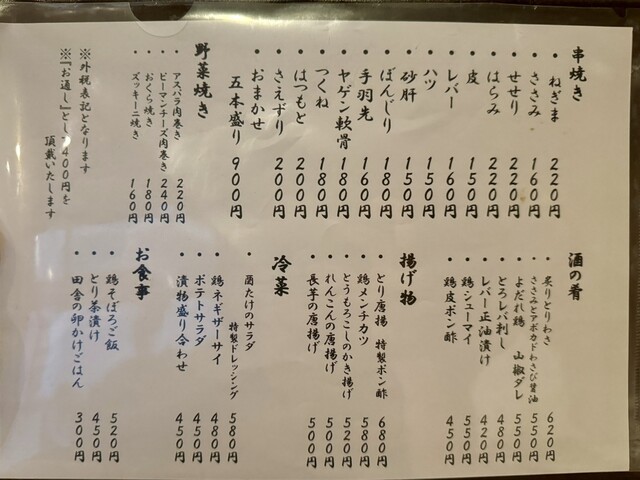 串焼き
・ねぎま 220円
・ささみ 160円
・せせり 220円
・はらみ 220円
・皮 150円
・レバー 160円
・ハツ 150円
・砂肝 150円
・ぼんじり 180円
・手羽先 160円
・ヤゲン軟骨 180円
・つくね 180円
・はつもと 200円
・さえずり 200円
・おまかせ
五本盛り 900円
野菜焼き
・アスパラ肉巻き 220円
・ピーマンチーズ肉巻き 240円
・おくら焼き 180円
・ズッキーニ焼き 160円
※外税表記となります
※『お通し』として400円を
頂戴いたします
酒の肴
・炙りとりわさ 620円
・ささみとアボカドわさび醤油 550円
・よだれ鶏 山椒ダレ 550円
・とろレバ刺し 480円
・レバー正油漬け 420円
・鶏シューマイ 550円
・鶏皮ポン酢 450円
揚げ物
・とり唐揚 特製ポン酢 680円
・鶏メンチカツ 580円
・とうもろこしのかき揚げ 520円
・れんこんの唐揚げ 500円
・長芋の唐揚げ 500円
冷菜
・茸たけのサラダ
特製ドレッシング 580円
・鶏ネギザーサイ 480円
・ポテトサラダ 450円
・漬物盛り合わせ 450円
お食事
・鶏そぼろご飯 520円
・とり茶漬け 450円
・田舎の卵かけごはん 300円